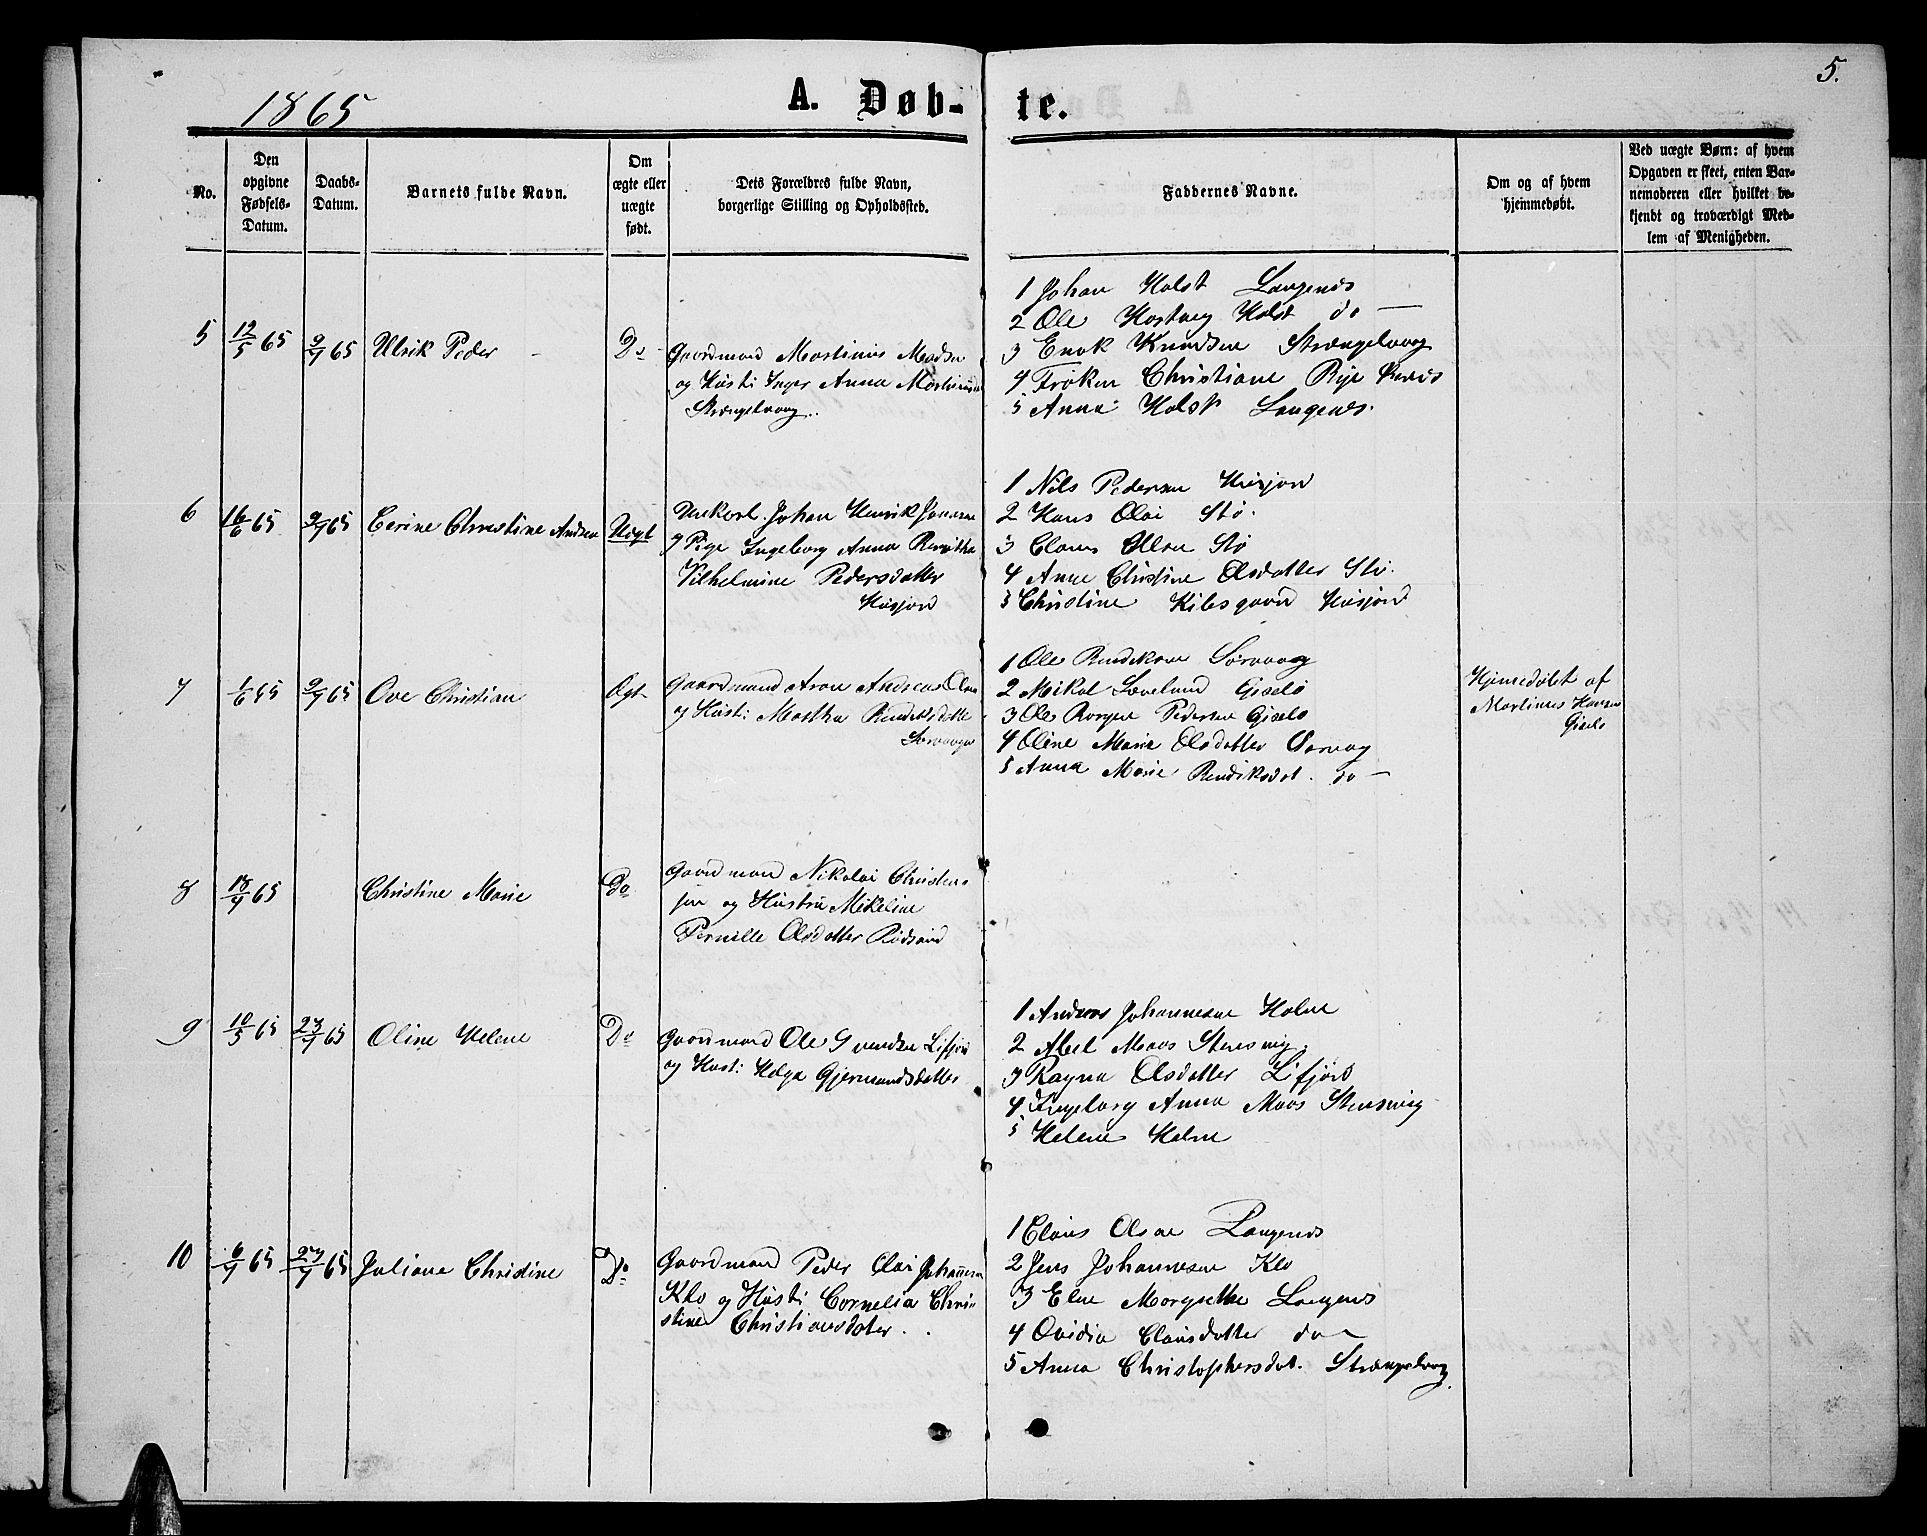 5.
1865
A. Døb- te.
No.
Den opgivne Fødsels-Datum.
Daabs-Datum.
Barnets fulde Navn.
Om ægte eller uægte født.
Dets Forældres fulde Navn, borgerlige Stilling og Opholdssted.
Faddernes Navne.
Om og af hvem hjemmedøbt.
Ved uægte Børn: af hvem Opgaven er skeet, enten Barnemoderen eller hvilket bekjendt og troværdigt Medlem af Menigheden.
5 12/5 65 9/7 65 Ulrik Peder Do
Gaardmand Martinus Madsen
og Hust: Inger Anna Martinus
Strengelvaag.
1 Johan Holst Langenes
2 Ole Hartvig Holst do
3 Enok Knudsen Strængelvaag
4 Frøken Christiane Rye
5 Anna Holst Langenes.
6 16/6 65 9/7 65 Cerine Christine Andrea Uægt
Unkarl. Johan Henrik Jansen
og Pige Ingeborg Anna
Vilhelmine Pedersdatter
Husjord
1 Nils Pedersen Husjord
2 Hans Olai Stø.
3 Claus Olsen Stø
4 Anne Christine Olsdatter Stø.
5 Christine Kilesgaard Husjord
7 1/6 65 9/7 65 Ove Christian Ægt
Gaardmand Aron Andreas Olsen
og Hust: Martha Rendiksdatte
Sorvaagen
1 Ole Rendiksen Sørvaag
2 Mikal Lovelund Gisslø
3 Ole Pedersen Gisslø
4 Oline Marie Olsdatter Sorvaag
5 Anna Marie Rendiksdat. do
Hjemmedøbt af
Martinus Hansen
Gisslø
8 18/7 65 Christine Marie Do
Gaardmand Nikolai Christen-
sen og Hustru Mikeline
Pernille Olsdatter Rødsand
9 10/5 65 23/7 65 Oline Helene Do
Gaardmand Ole Svendsen Lifjord
og Hust: Helga Gjermundsdatter
1 Andreas Johannesen Holm
2 Abel Maas Stensvig.
3 Ragna Olsdatter Lifjord
4 Ingeborg Anna Maas Stensvig
5 Helene Holm
10 6/7 65 23/7 65 Juliane Christine Do
Gaardmand Peder Olai Johannesen
Klo og Hust: Cornelia Chri-
stine Christiansdater.
1 Claus Olsen Langenes
2 Jens Johannesen Klo
3 Elen Margrethe Langenes
4 Ovidia Clausdatter do
5 Anna Christophersdat. Strængelvaag.